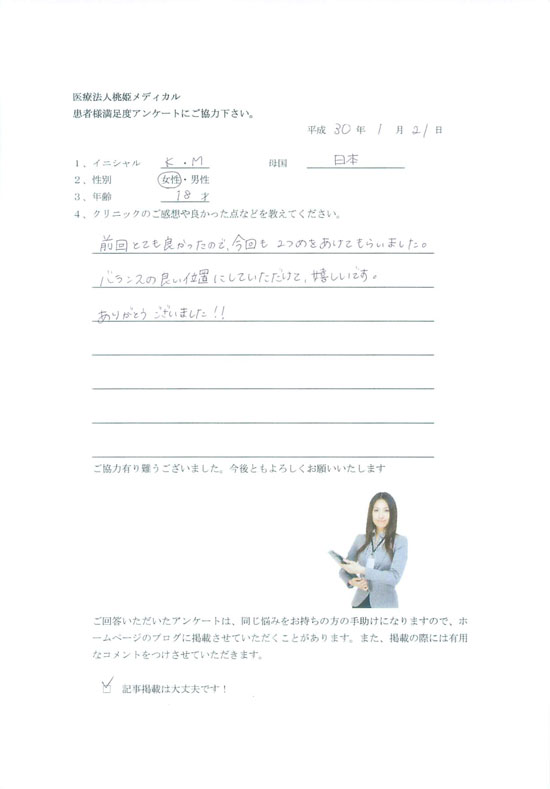 医療法人桃姫メディカル
患者様満足度アンケートにご協力下さい。
平成 30 年 1 月 21 日
1、イニシャル K・M 母国 日本
2、性別 女性・男性
3、年齢 18才
4、クリニックのご感想や良かった点などを教えてください。
前回とても良かったので、今回も2つめをあけてもらいました。
バランスの良い位置にしていただけて、嬉しいです。
ありがとうございました!!
ご協力有り難うございました。今後ともよろしくお願いいたします
ご回答いただいたアンケートは、同じ悩みをお持ちの方の手助けになりますので、ホ
ームページのブログに掲載させていただくことがあります。また、掲載の際には有用
なコメントをつけさせていただきます。
記事掲載は大丈夫です!